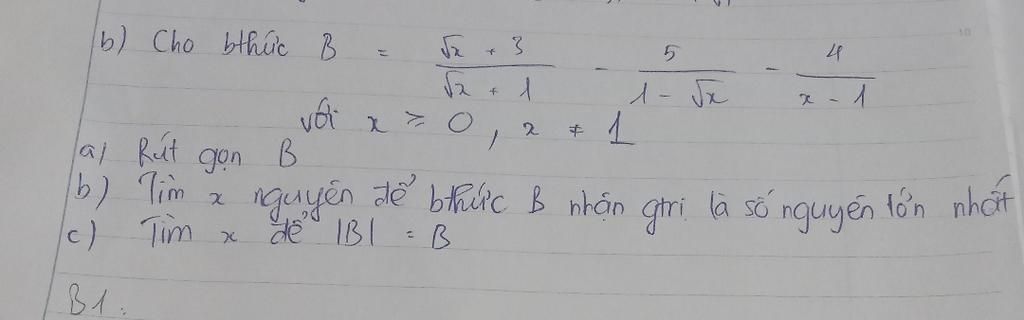 b) Cho bthức B = (√x + 3)/(√x + 1) - 5/(1 - √x) - 4/(x - 1)
với x ≥ 0, x ≠ 1
a) Rút gọn B
b) Tìm x nguyên để bthức B nhận gtrị là số nguyên lớn nhất
c) Tìm x để |B| = B
B1: